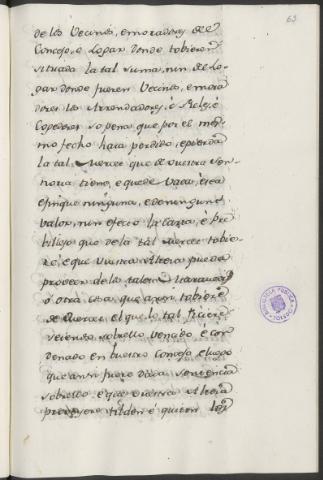 63
de los Vecinos, e moradores de el
Concejo, e Logar donde tobieren
situada la tal suma, nin de Lo-
gar donde fueren Vecinos, e mora-
dores los Arrendadores, é Fieles, é
Cogedores so pena que por el mes-
mo fecho haia perdido, e pierda
la tal Merced que de vuestra Sen-
noria tiene, e quede Vaca, é sea
é finque ninguna, e de ningunt
valor, nin efecto la Carta, é Pre-
billejo que de la tal Merced tobie-
re, é que Vuestra Alteza pueda
proveer de la tal
ó otra cosa, que ansi tobiere
de Merced el que lo tal ficiere
seiendo sobrello vencido é con-
denado en vuestro Consejo, e luego
que ansi fuere dada sentencia
sobrello, é que Vuestra Alteza
proveyere tilden é quiten los
BIBLIOTECA PUBLICA
TOLEDO